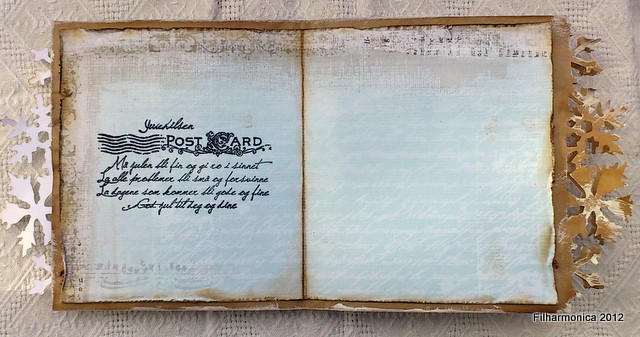 Julehilsen
POST CARD
Må julen bli fin og gi ro i sinnet
La alle problemer bli små og forsvinne
La dagene som kommer bli gode og fine
God jul til deg og dine
Filharmonica 2012